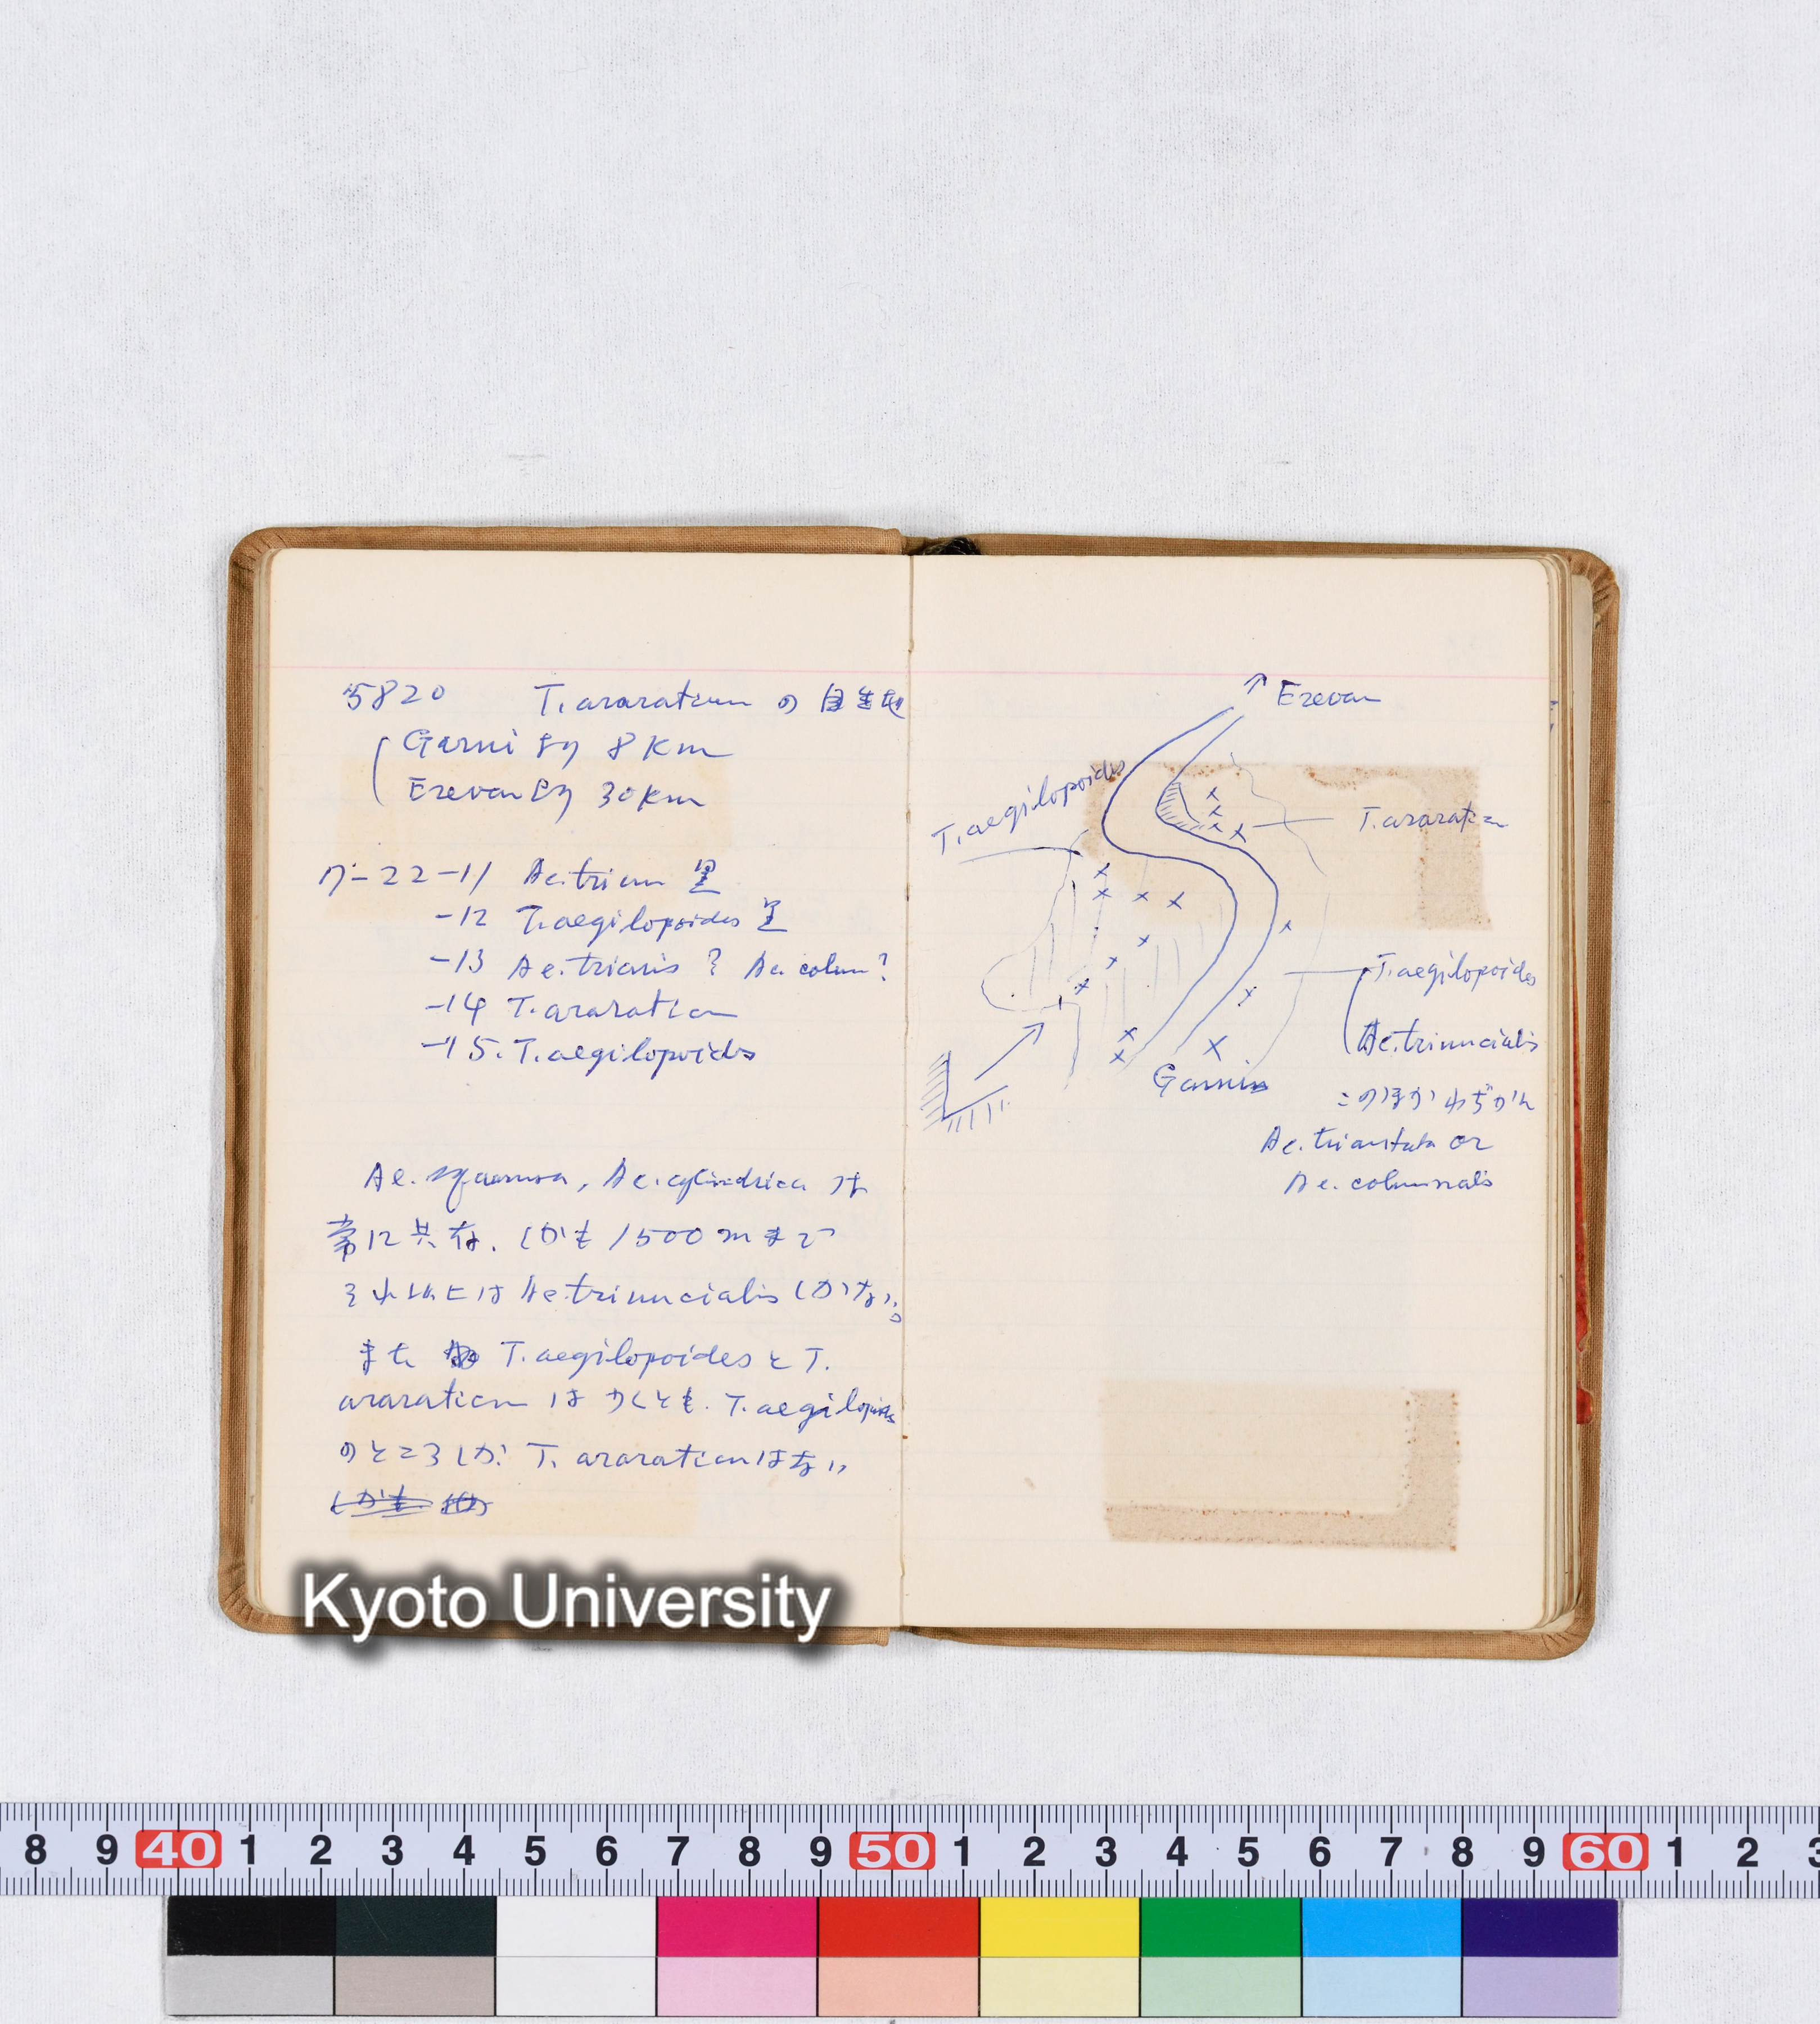 5820 T. araraticum の自生地
Garni より 8 Km
Erevan より 30 Km
7-22-11 Ae. triun 黒
-12 T. aegilopoides 黒
-13 Ae. triaris ? Ae. colum?
-14 T. araraticum
-15. T. aegilopoides
Ae. squarrosa, Ae. cylindrica は
常に共存. しかも 1500 m まで
それ以上は Ae. triuncialis しかない。
また T. aegilopoides と T.
araraticum は 少くとも. T. aegilopoides
のところしか T. araraticum はない
しかも 他
↑ Erevan
T. aegilopoides
T. araraticum
T. aegilopoides
Ae. triuncialis
Garni
このほかわずかに
Ae. triaristata or
Ae. columnaris
Kyoto University
8 9 40 1 2 3 4 5 6 7 8 9 50 1 2 3 4 5 6 7 8 9 60 1 2 3